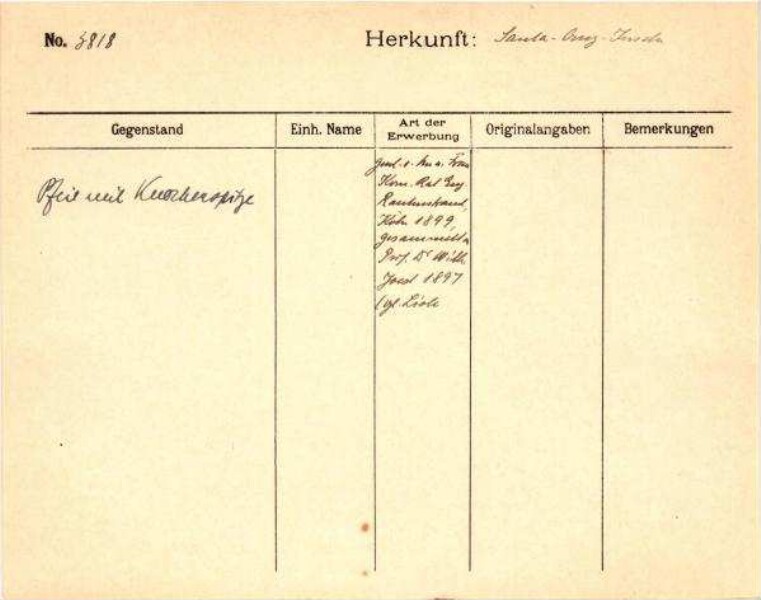 No. 3818
Herkunft: Santa-Cruz-Inseln
Gegenstand
Einh. Name
Art der
Erwerbung
Originalangaben
Bemerkungen
Pfeil mit Knochenspitze
Frau
Kom. Rat Eug
Rautenstrauch,
Köln 1899,
gesammelt v.
Prof. Dr Wilh.
Joest 1897
(vgl. Liste